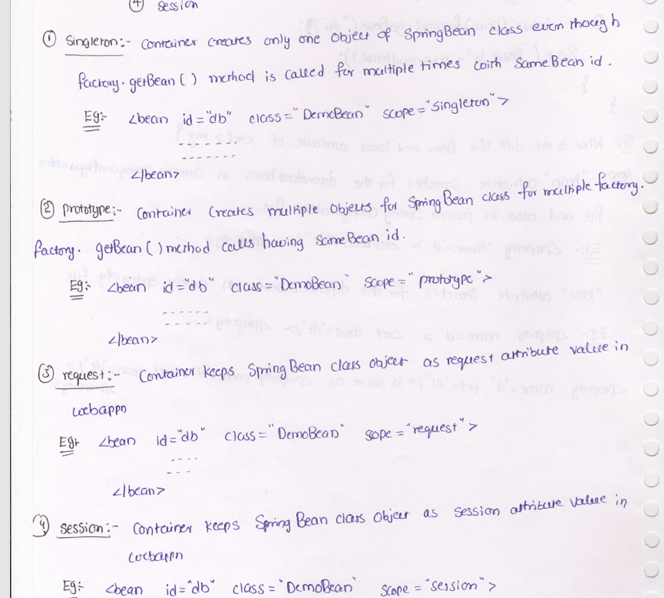 ④ Session
① Singleton:- Container creates only one object of SpringBean class even though
factory.getBean() method is called for multiple times with Same Bean id.
Eg:- <bean id="db" class="DemoBean" scope="singleton">
-------
-------
</bean>
② prototype:- Container Creates multiple objects for SpringBean class for multiple factory.
factory.getBean() method calls having Same Bean id.
Eg:- <bean id="db" class="DemoBean" scope="prototype">
------
------
</bean>
③ request:- Container keeps Spring Bean class object as request attribute value in
webappn
Eg:- <bean id="db" class="DemoBean" sope="request">
----
---
</bean>
④ Session:- Container keeps Spring Bean class object as Session attribute value in
webappn
Eg:- <bean id="db" class="DemoBean" scope="session">